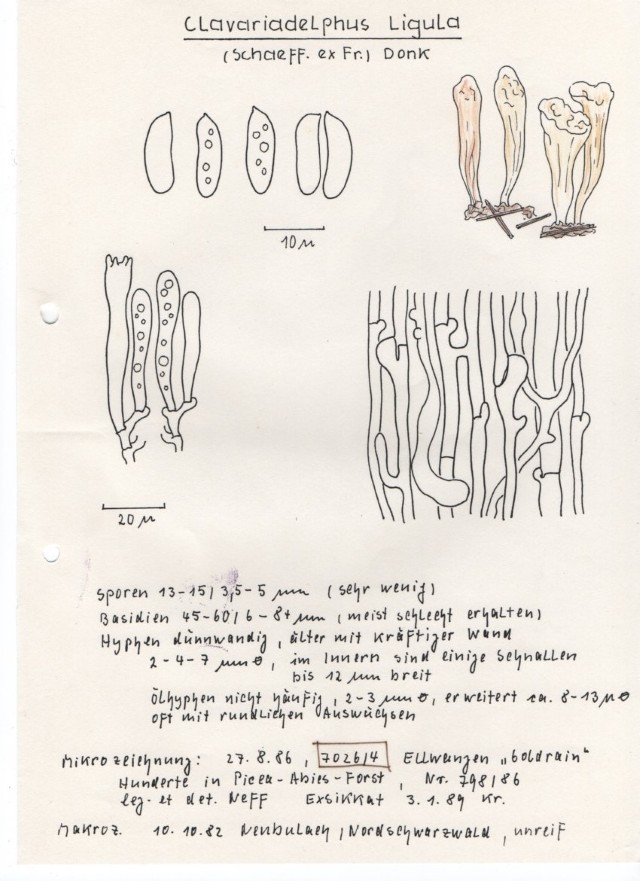 Clavariadelphus Ligula
(Schaeff. ex Fr.) Donk
10 µ
20 µ
Sporen 13-15/3,5-5 µm (sehr wenig)
Basidien 45-60/6-8+ µm (meist schlecht erhalten)
Hyphen dünnwandig, älter mit kräftiger Wand
2-4-7 µm ø, im Innern sind einige Schnallen
bis 12 µm breit
Ölhyphen nicht häufig, 2-3 µm ø, erweitert ca. 8-13 µ ø
oft mit rundlichen Auswüchsen
Mikrozeichnung: 27.8.86, 7026/4 Ellwangen "Goldrain"
Hunderte in Picea-Abies-Forst, Nr. 798/86
leg. et det. Neff Exsikkat 3.1.89 Kr.
Makroz. 10.10.82 Neubulach, Nordschwarzwald, unreif